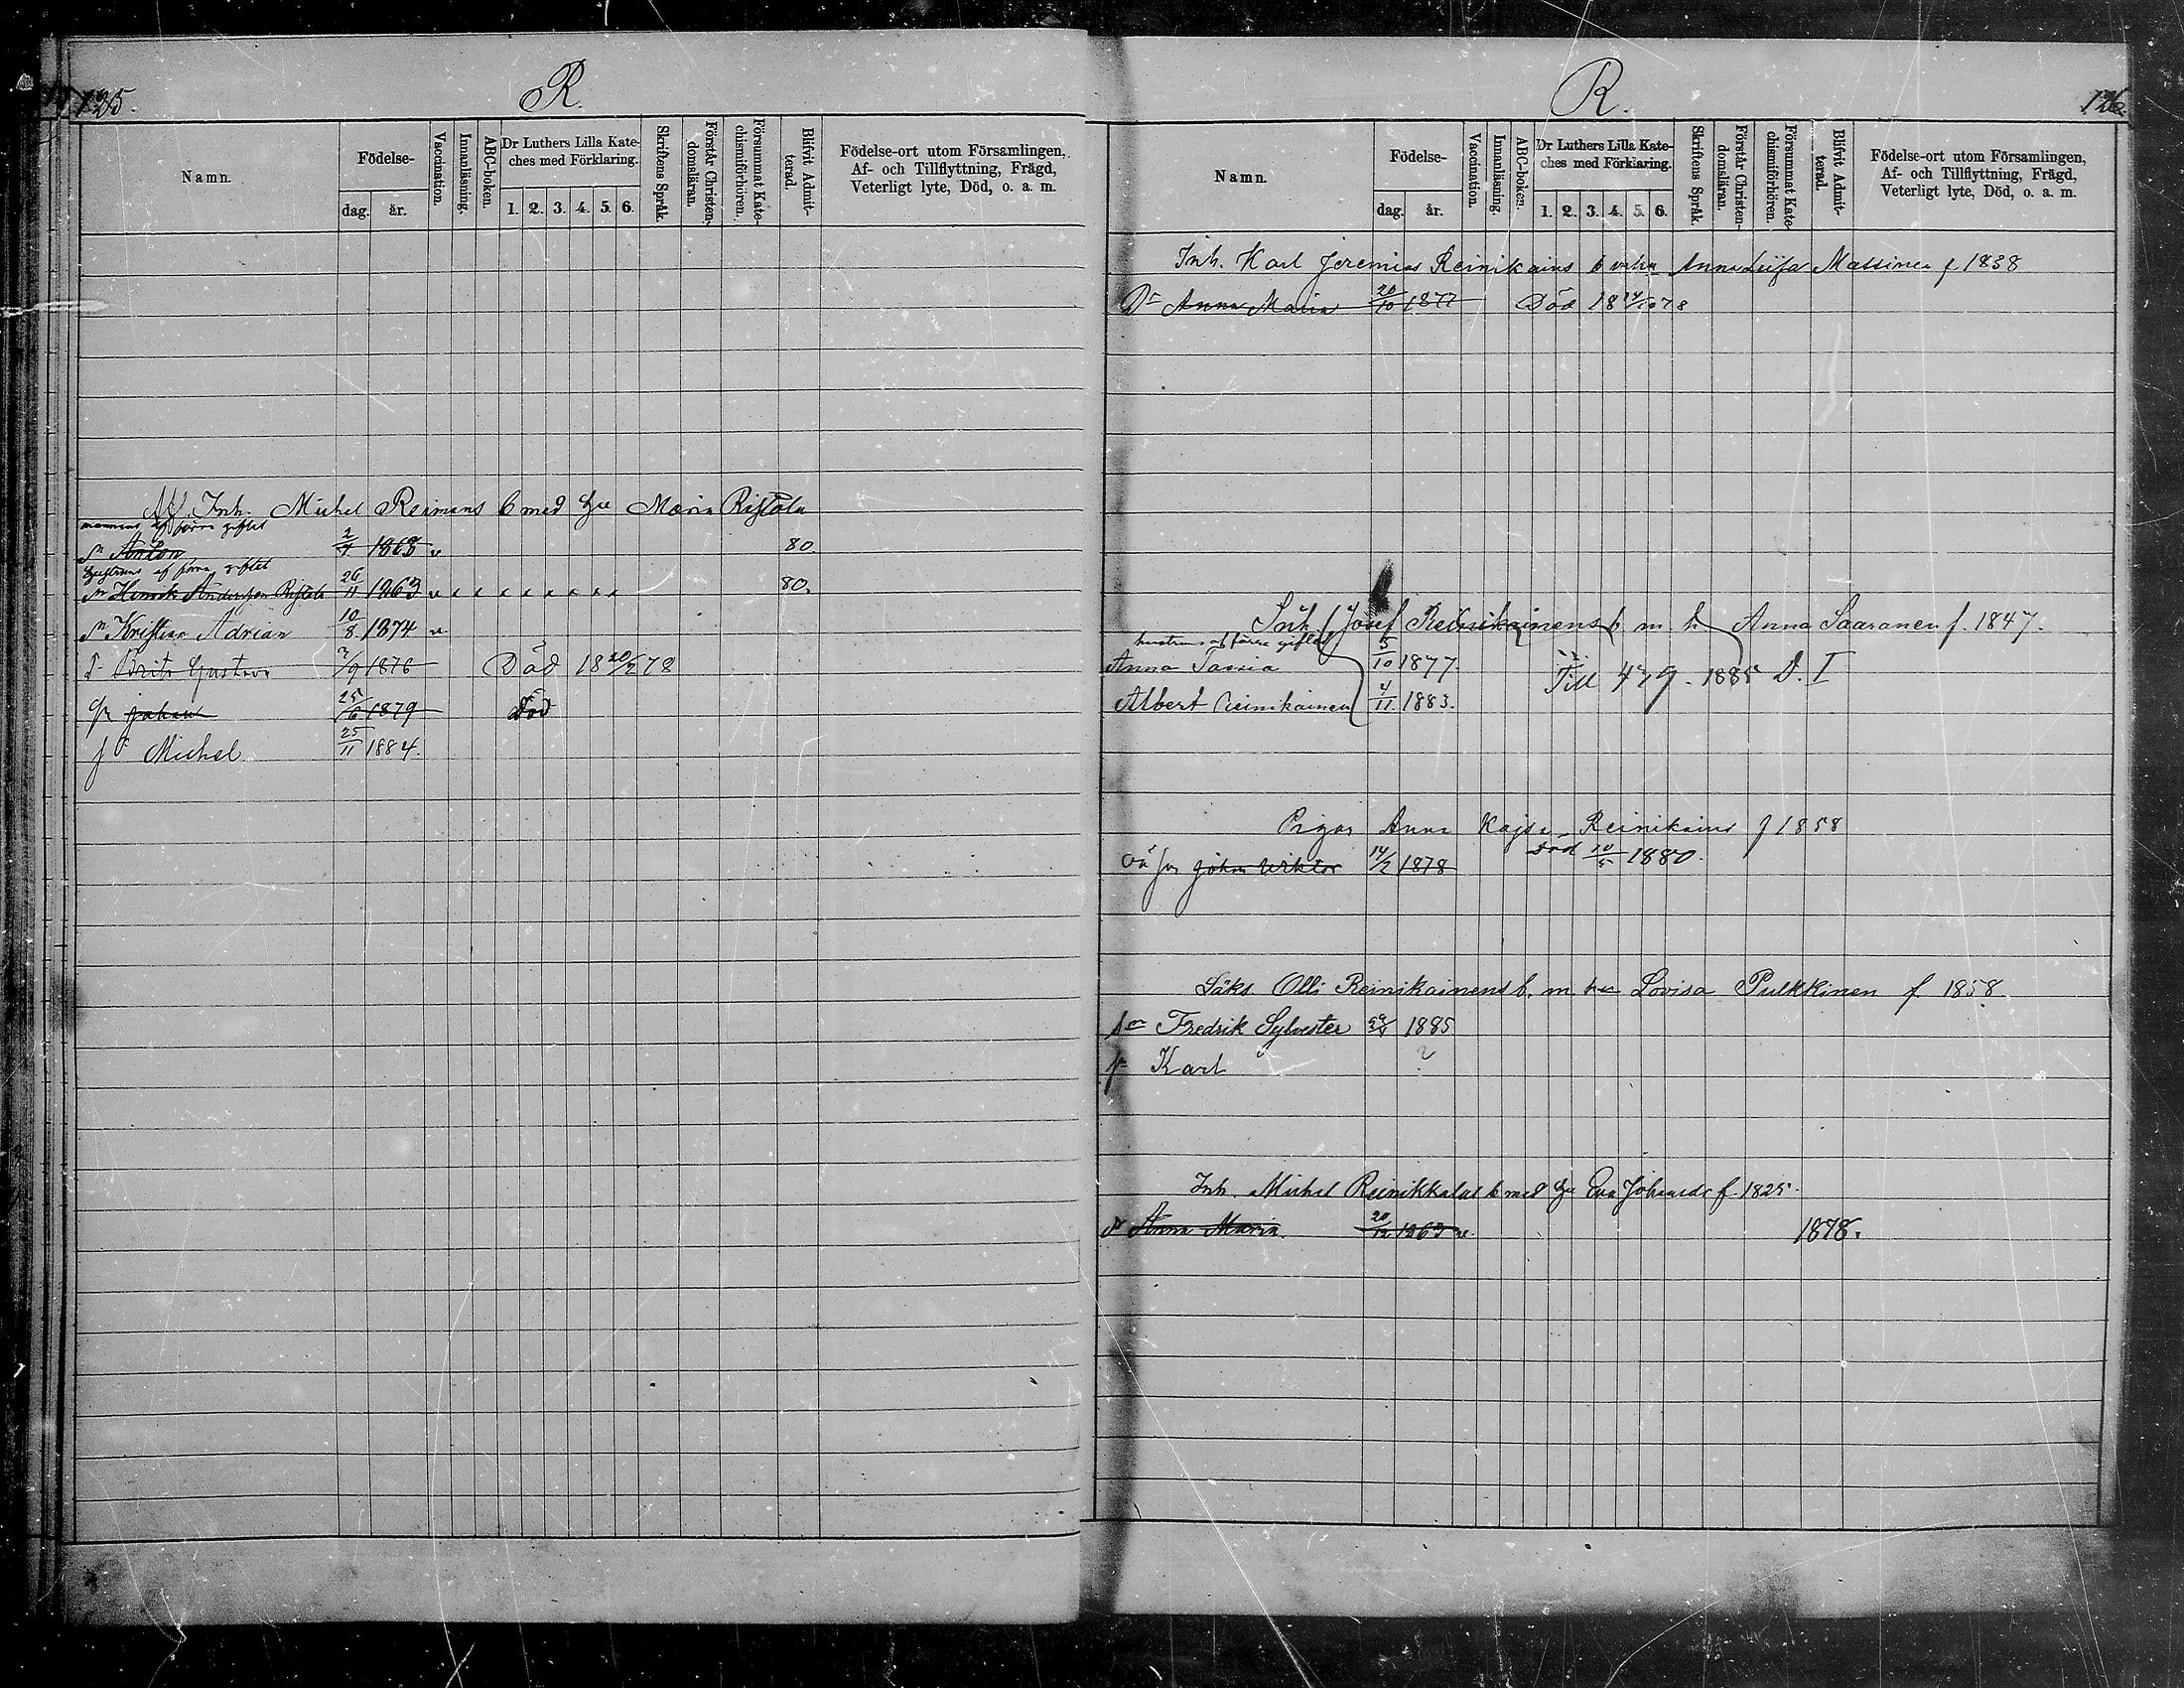 125.
R.
Namn.
Födelse-
dag.
år.
Vaccination.
Innanläsning.
ABC-boken.
Dr Luthers Lilla Kate-
ches med Förklaring.
1. 2. 3. 4. 5. 6.
Skriftens Språk.
Förstår Christen-
domsläran.
Försummat Kate-
chismiförhören.
Blifvit Admit-
terad.
Födelse-ort utom Församlingen,
Af- och Tillflyttning, Frägd,
Veterligt lyte, Död, o. a. m.
Inh. Michel Reimans b med hu Maria Ristola
mannens af förra giftet
sn Anton 2/7 v 80.
hustruns af förra giftet
sn Henrik Andersson Ristola 26/11 1863 v 80.
sn Kristian Adrian 10/8 1874 v.
d. Brita Gustava /9 1876 Död 18 20/2 78
Johan 25/6 1879 Död
Michel 25/11 1884.
R.
126.
Namn.
Födelse-
dag.
år.
Vaccination.
Innanläsning.
ABC-boken.
Dr Luthers Lilla Kate-
ches med Förklaring.
1. 2. 3. 4. 5. 6.
Skriftens Språk.
Förstår Christen-
domsläran.
Försummat Kate-
chismiförhören.
Blifvit Admit-
terad.
Födelse-ort utom Församlingen,
Af- och Tillflyttning, Frägd,
Veterligt lyte, Död, o. a. m.
Inh. Karl Jeremias Reinikains b Anna f 1838
Dr Anna Maria 20/10 1877 Död 18 78
Inh. Josef Reinikainens b m h Anna Saaranen f. 1847.
hustruns af förra giftet
Anna 5/10 1877.
Till 479. 1885 D. I
Albert Reinikainen 4/11 1883.
Pigan Anna Kajsa Reinikains f 1858
Död 10/5 1880.
oä sn Johan Viktor 14/2 1878
Olli Reinikainens b. m. hu Lovisa Pulkkinen f. 1858
sn Fredrik Sylvester 1885
sn Karl ?
Inh. Michel b med hu Eva f. 1825.
d Anna Maria 20/12 1863 v. 1878.